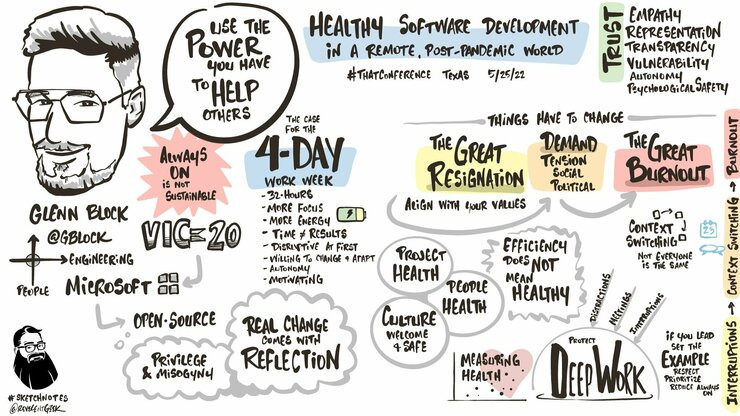 USE THE
POWER
YOU HAVE
TO HELP
OTHERS
HEALTHY SOFTWARE DEVELOPMENT
IN A REMOTE, POST-PANDEMIC WORLD
#THATCONFERENCE TEXAS 5/25/22
TRUST
EMPATHY
REPRESENTATION
TRANSPARENCY
VULNERABILITY
AUTONOMY
PSYCHOLOGICAL SAFETY
ALWAYS
ON
IS NOT
SUSTAINABLE
THE CASE
FOR THE
4-DAY
WORK WEEK
- 32-HOURS
- MORE FOCUS
- MORE ENERGY
- TIME ≠ RESULTS
- DISRUPTIVE AT FIRST
- WILLING TO CHANGE & ADAPT
- AUTONOMY
- MOTIVATING
GLENN BLOCK
@GBLOCK
ENGINEERING
PEOPLE
VIC-20
MICROSOFT
OPEN-SOURCE
PRIVILEGE
& MISOGYNY
REAL CHANGE
COMES WITH
REFLECTION
THINGS HAVE TO CHANGE
THE GREAT
RESIGNATION
DEMAND
TENSION
SOCIAL
POLITICAL
THE GREAT
BURNOUT
ALIGN WITH YOUR VALUES
PROJECT
HEALTH
PEOPLE
HEALTH
CULTURE
WELCOME
& SAFE
EFFICIENCY
DOES NOT
MEAN
HEALTHY
CONTEXT
SWITCHING
NOT EVERYONE
IS THE SAME
23
MEASURING
HEALTH
DISTRACTIONS
MEETINGS
INTERRUPTIONS
PROTECT
DEEP WORK
IF YOU LEAD
SET THE
EXAMPLE
RESPECT
PRIORITIZE
REDUCE ALWAYS
ON
INTERRUPTIONS → CONTEXT SWITCHING → BURNOUT
#SKETCHNOTES
@REVERENTGEEK